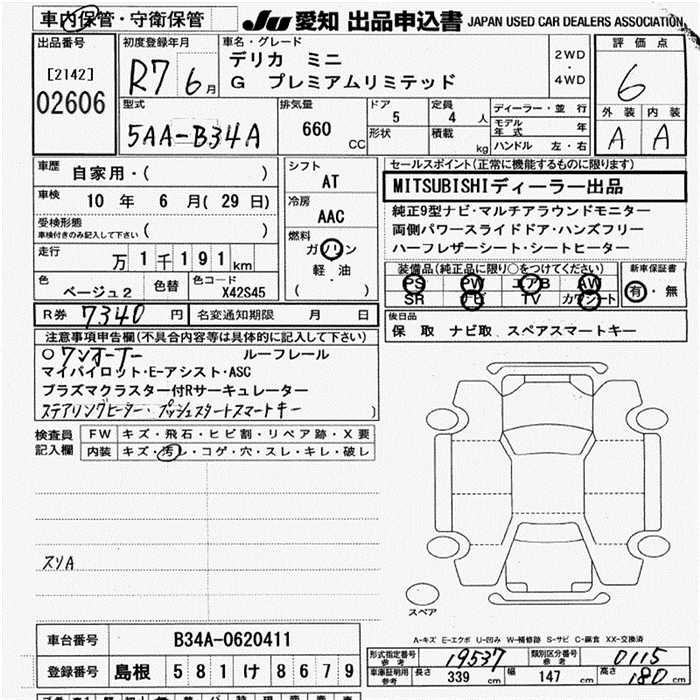 車内保管・守衛保管
JU 愛知 出品申込書 JAPAN USED CAR DEALERS ASSOCIATION
出品番号
[2142]
02606
初度登録年月
R7 6月
車名・グレード
デリカ ミニ
G プレミアムリミテッド
2WD
・
4WD
評価点
6
外装 内装
A A
型式
5AA-B34A
排気量
660 CC
ドア
5
定員
4 人
形状
積載
kg
ディーラー・並行
モデル年式 年
ハンドル 左・右
車歴
自家用・( )
車検
10 年 6 月( 29 日)
受検形態
車検付きのみ記入して下さい ( )
走行
万 1千191 km
色
ベージュ2
色替
色コード
X42S45
シフト
AT
冷房
AAC
燃料
ガソリン
軽・油
( )
セールスポイント(正常に機能するものに限ります)
MITSUBISHIディーラー出品
純正9型ナビ・マルチアラウンドモニター
両側パワースライドドア・ハンズフリー
ハーフレザーシート・シートヒーター
装備品(純正品に限り○をつけてください)
PS PW エアB AW
SR ナビ TV カワシート
新車保証書
有・無
R券 7340 円
名変通知期限 月 日
後日品
保 取 ナビ取 スペアスマートキー
注意事項申告欄(不具合内容等は具体的に記入して下さい)
○ワンオーナー ルーフレール
マイパイロット・E-アシスト・ASC
プラズマクラスター付Rサーキュレーター
ステアリングヒーター・プッシュスタートスマートキー )
検査員記入欄
FW キズ・飛石・ヒビ割・リペア跡・X要
内装 キズ・汚レ・コゲ・穴・スレ・キレ・破レ
スリA
スペア
A-キズ E-エクボ U-凹み W-補修跡 S-サビ C-腐食 XX-交換済
車台番号 B34A-0620411
登録番号 島根 581 け 8679
形式指定番号 参考 19537
類別区分番号 参考 0115
車庫証明用 参考 長さ 339 cm 幅 147 cm 高さ 180 cm